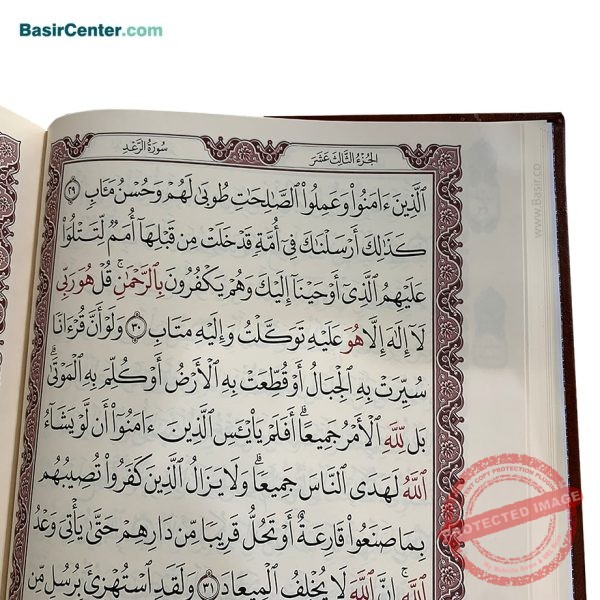 BasirCenter.com
سُورَةُ الرَّعْدِ
الجُزْءُ الثَّالِثَ عَشَرَ
ٱلَّذِينَ ءَامَنُوا۟ وَعَمِلُوا۟ ٱلصَّٰلِحَٰتِ طُوبَىٰ لَهُمْ وَحُسْنُ مَـَٔابٍ ٢٩
كَذَٰلِكَ أَرْسَلْنَٰكَ فِىٓ أُمَّةٍ قَدْ خَلَتْ مِن قَبْلِهَآ أُمَمٌ لِّتَتْلُوَا۟
عَلَيْهِمُ ٱلَّذِىٓ أَوْحَيْنَآ إِلَيْكَ وَهُمْ يَكْفُرُونَ بِٱلرَّحْمَٰنِ ۚ قُلْ هُوَ رَبِّى
لَآ إِلَٰهَ إِلَّا هُوَ عَلَيْهِ تَوَكَّلْتُ وَإِلَيْهِ مَتَابِ ٣٠ وَلَوْ أَنَّ قُرْءَانًا
سُيِّرَتْ بِهِ ٱلْجِبَالُ أَوْ قُطِّعَتْ بِهِ ٱلْأَرْضُ أَوْ كُلِّمَ بِهِ ٱلْمَوْتَىٰ ۗ
بَل لِّلَّهِ ٱلْأَمْرُ جَمِيعًا ۗ أَفَلَمْ يَا۟يْـَٔسِ ٱلَّذِينَ ءَامَنُوٓا۟ أَن لَّوْ يَشَآءُ
ٱللَّهُ لَهَدَى ٱلنَّاسَ جَمِيعًا ۗ وَلَا يَزَالُ ٱلَّذِينَ كَفَرُوا۟ تُصِيبُهُم
بِمَا صَنَعُوا۟ قَارِعَةٌ أَوْ تَحُلُّ قَرِيبًا مِّن دَارِهِمْ حَتَّىٰ يَأْتِىَ وَعْدُ
ٱللَّهِ ۚ إِنَّ ٱللَّهَ لَا يُخْلِفُ ٱلْمِيعَادَ ٣١ وَلَقَدِ ٱسْتُهْزِئَ بِرُسُلٍ مِّن
www.Basir.co
PROTECTED IMAGE